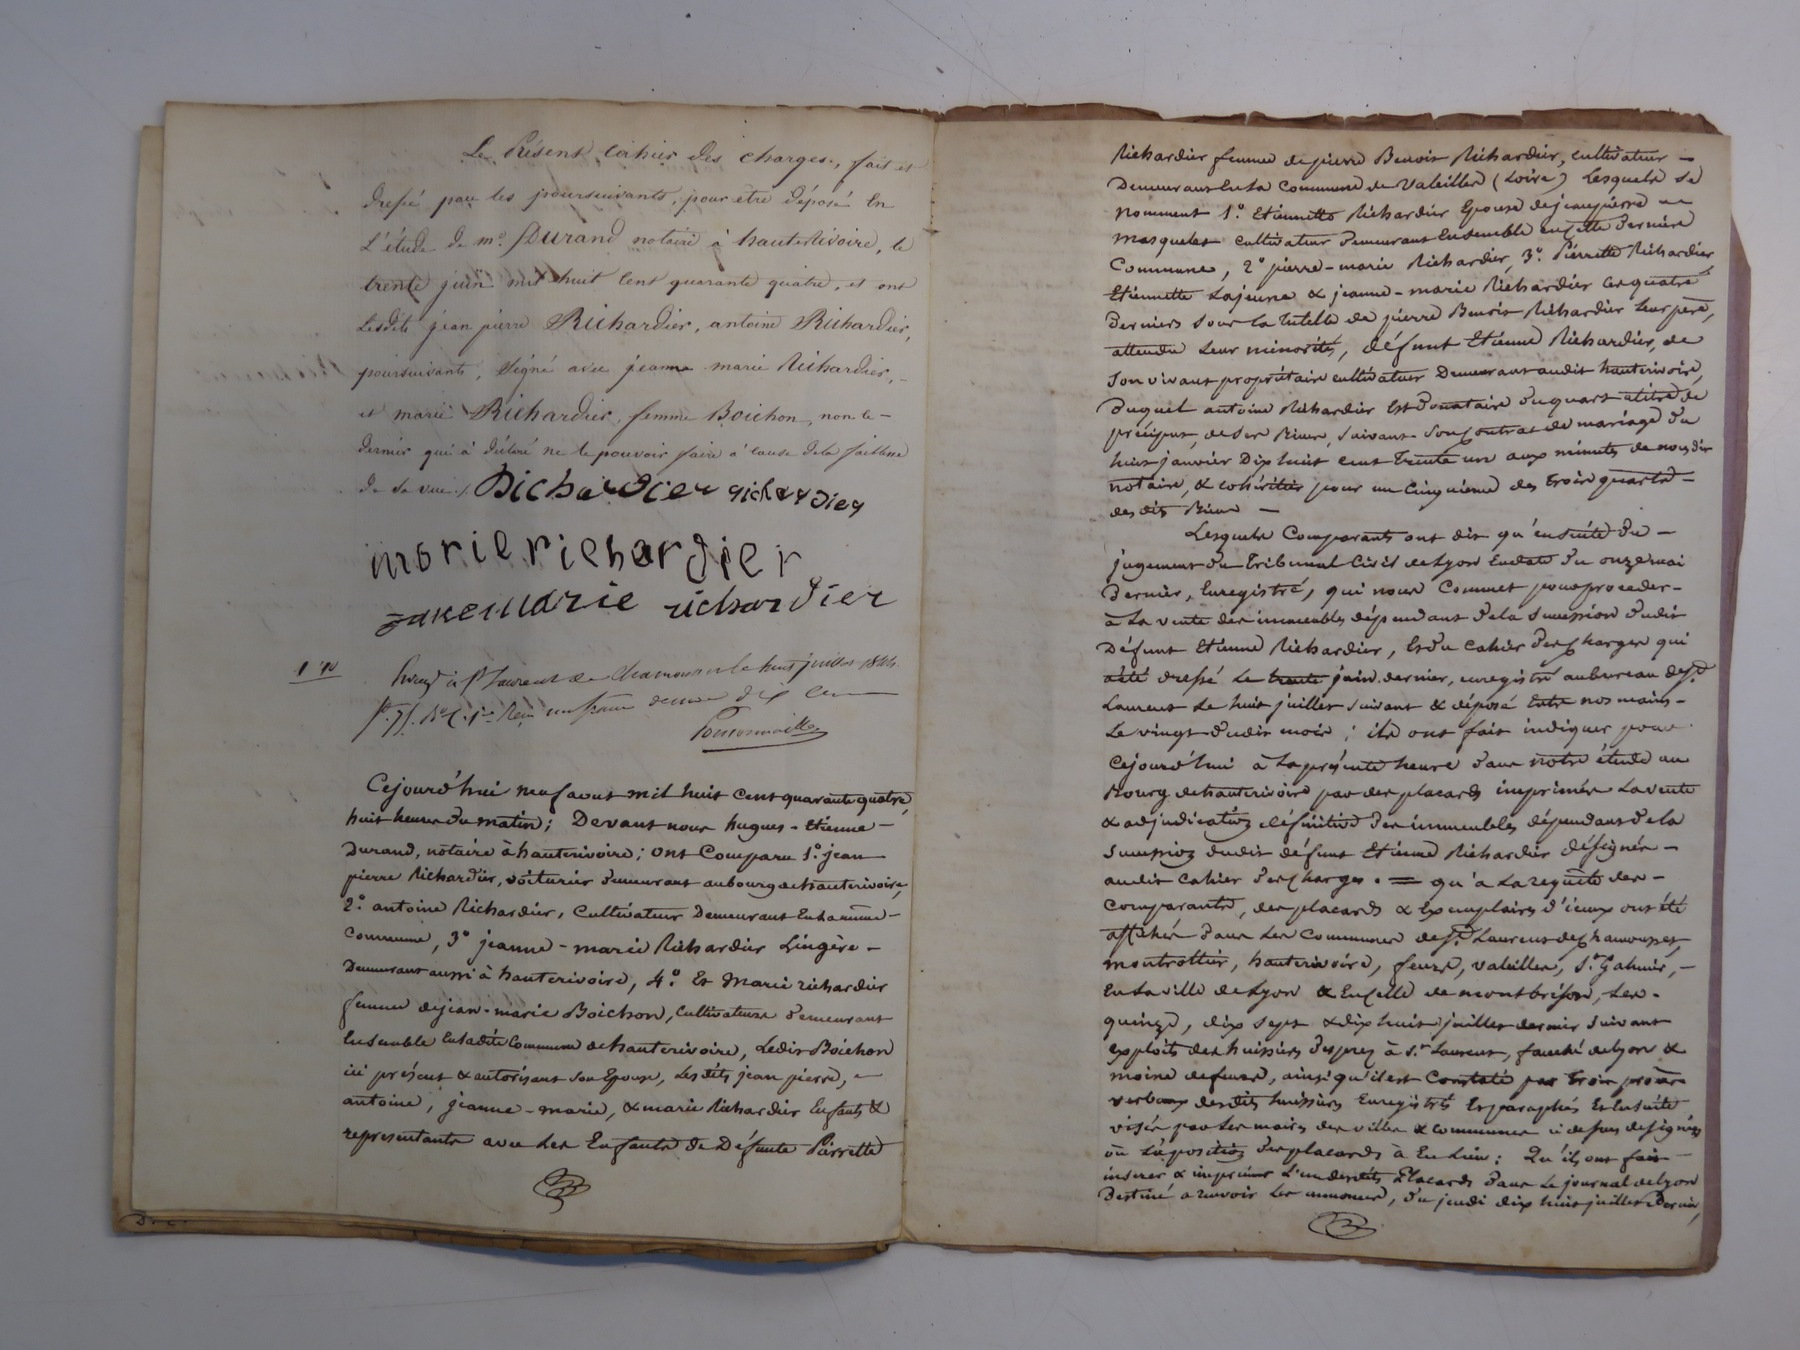 Le Présent cahier des charges, fait et
dressé par les poursuivants, pour être déposé en
L'étude de me. Durand notaire à hauterivoire, le
trente juin mil huit cent quarante quatre, et ont
Lesdits jean pierre Richardier, antoine Richardier,
poursuivants, signé avec jeanne marie Richardier, -
et marie Richardier, femme Boichon, non le -
dernier qui a déclaré ne le pouvoir faire à cause de la faiblesse
de sa vue ./. Richardier richardier
marie richardier
janemarie richardier
1 10 Enregé à St Laurent de Chamousset le huit juillet 1844.
fo. 71. Ro C. 1re Reçu un franc decime dix cen
Cejourd'hui neuf aout mil huit cent quarante quatre,
huit heures du matin; Devant nous hugues - Etienne -
Durand, notaire à hauterivoire; ont Comparu 1o. jean
pierre Richardier, voiturier demeurant au bourg de hauterivoire,
2o. antoine Richardier, Cultivateur Demeurant En la même -
Commune, 3o jeanne - marie Richardier Lingère -
Demeurant aussi à hauterivoire, 4o. Et Marie richardier
femme de jean - marie Boichon, Cultivateurs demeurant
Ensemble En ladite Commune de hauterivoire, Ledit Boichon
ici présent & autorisant son Epouse, Les dits jean pierre, -
antoine, jeanne - marie, & marie Richardier Enfants &
representants avec Les Enfants de Défunte Pierrette
Richardier femme de pierre Benoit Richardier, cultivateur -
Demeurant En la Commune de Valeille (Loire) Lesquels se
nomment 1o. Etiennette Richardier Epouse de jean pierre
masquelet cultivateur demeurant Ensemble en cette dernière
Commune, 2o pierre - marie Richardier, 3o. Pierrette Richardier,
Etiennette Lajeune & jeanne - marie Richardier Ces quatre
Derniers sous la tutelle de pierre Benoit Richardier leur père,
attendu Leur minorité, défunt Etienne Richardier, de
son vivant propriétaire cultivateur Demeurant audit hauterivoire,
duquel antoine Richardier Est donataire du quart a titre de
préciput, de ses Biens, suivant son Contrat de mariage du
huit janvier Dix huit cent trente un aux minutes de nous dit
notaire, & cohéritier pour un Cinquieme des trois quarts -
des dits Biens -
Lesquels Comparants ont dit qu'ensuite du -
jugement du Tribunal Civil de Lyon En date du onze mai
Dernier, Enregistré, qui nous Commet pour proceder -
à La vente des immeubles dépendants de la succession dudit
Défunt Etienne Richardier, Et du Cahier des Charges qui
a été dressé Le trente juin dernier, enregistré au bureau de St.
Laurent Le huit juillet suivant & déposé Entre nos mains -
Le vingt dudit mois ; ils ont fait indiquer pour
Cejourd'hui à La présente heure dans notre étude au
Bourg de hauterivoire par des placards imprimés La vente
& adjudication définitive des immeubles dépendants de la
Succession dudit défunt Etienne Richardier désignés -
audit Cahier des Charges . = qu'à La requête des -
Comparants, des placards & Exemplaires d'iceux ont été
affichés dans Les Communes de St. Laurent de Chamousset,
montrottier, hauterivoire, feurs, valeilles, St. Galmier, -
En La ville de Lyon & En Celle de montbrison, Les -
quinze, dix sept & dix huit juillet dernier suivant
exploits des huissiers Desprez à St. Laurent, de Lyon &
moine de feurs, ainsi qu'il est Constaté par trois procès
verbaux desdits huissiers Enregistrés Et paraphés Et Ensuite
visés par Les maires des villes & communes ci dessus désignées
où L'aposition des placards à Eu Lieu : Qu'ils ont fait -
insérer & imprimer L'un desdits Placards dans Le journal de Lyon
Destiné a recevoir Les annonces, du jeudi dix huit juillet Dernier,